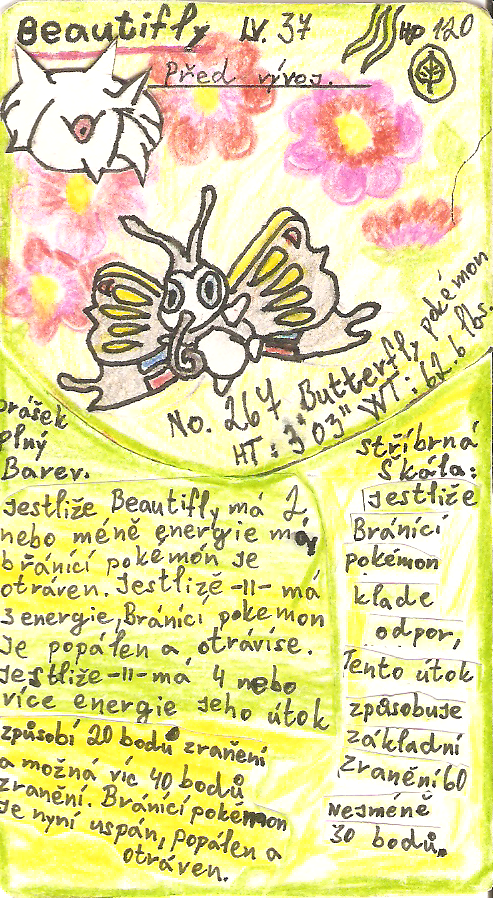 Beautifly LV. 37 HP 120
Před vývoj.
No. 267 Butterfly pokémon
HT: 3'03" WT: 62.6 lbs.
prášek
plný
Barev.
Jestliže Beautifly má 2
nebo méně energie
bránící pokémón je
otráven. Jestliže -11- má
3 energie, Bránící pokemon
je popálen a otrávíse.
Jestliže -11- má 4 nebo
více energie jeho útok
způsobí 20 bodů zranění
a možná víc 40 bodů
zranění. Bránící pokémon
je nyní uspán, popálen a
otráven.
Stříbrná
Škála:
Jestliže
Bránící
pokémon
klade
odpor,
Tento útok
způsobuje
základní
zranění 60
Nejméně
30 bodů.